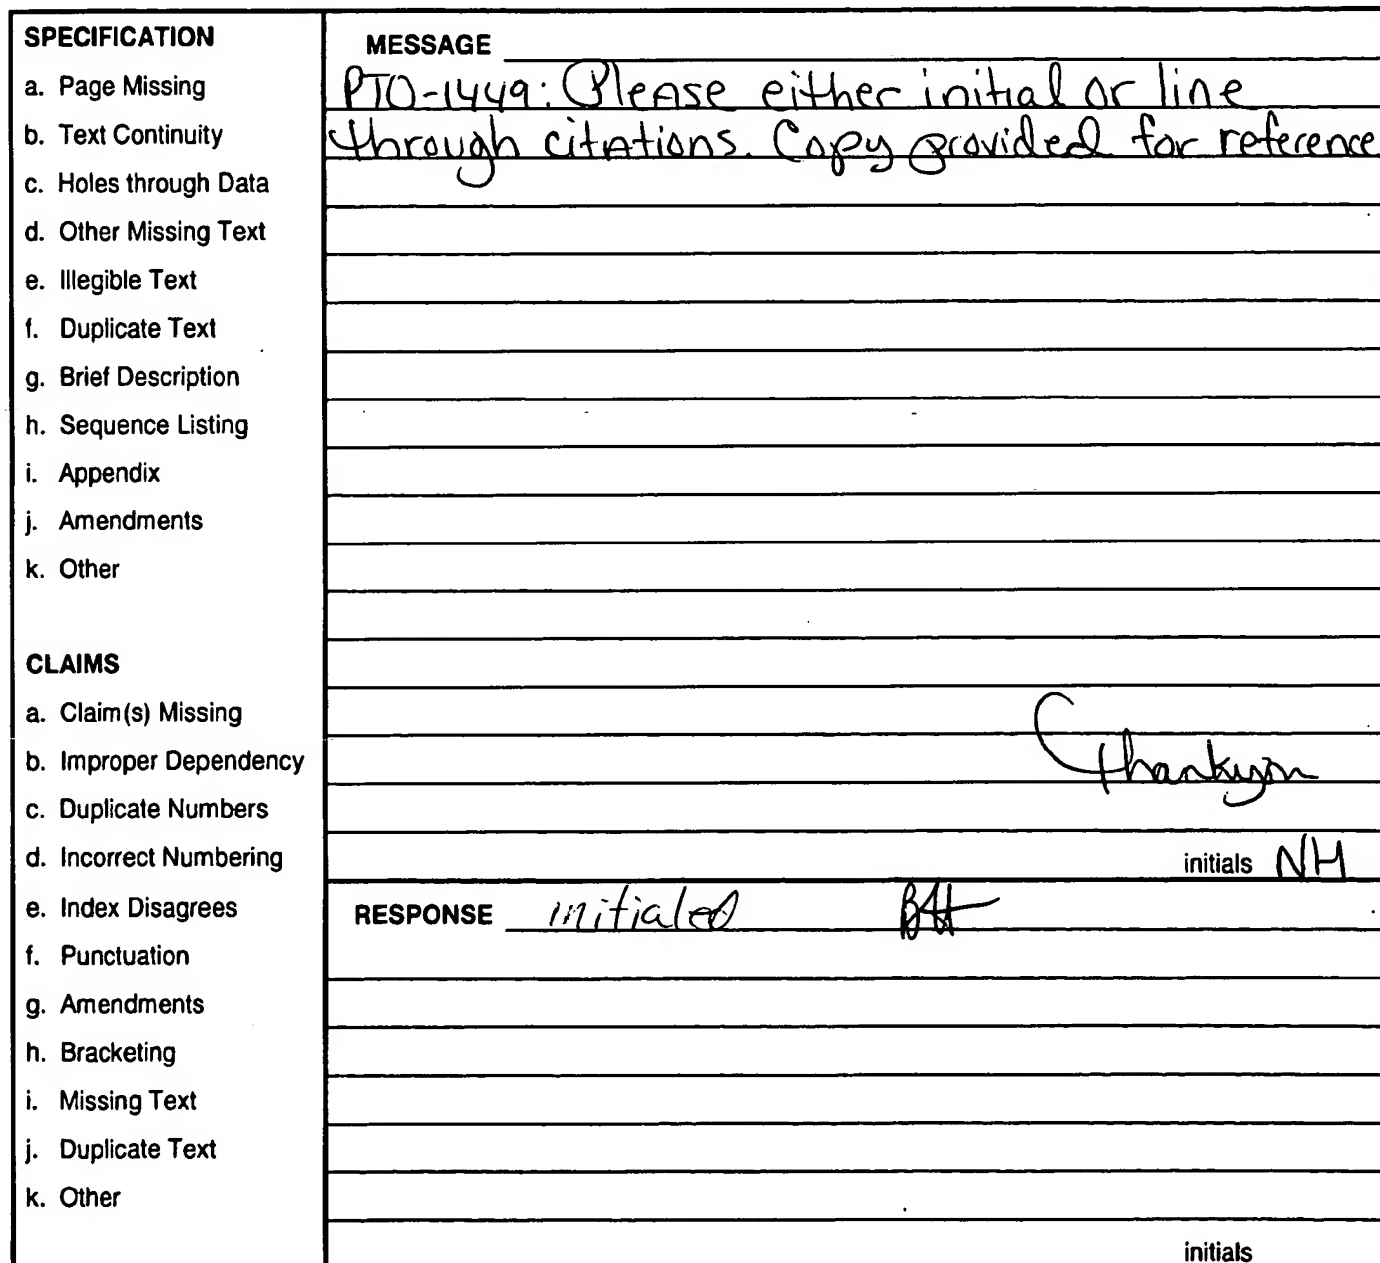 SPECIFICATION
a. Page Missing
b. Text Continuity
c. Holes through Data
d. Other Missing Text
e. Illegible Text
f. Duplicate Text
g. Brief Description
h. Sequence Listing
i. Appendix
j. Amendments
k. Other
CLAIMS
a. Claim(s) Missing
b. Improper Dependency
c. Duplicate Numbers
d. Incorrect Numbering
e. Index Disagrees
f. Punctuation
g. Amendments
h. Bracketing
i. Missing Text
j. Duplicate Text
k. Other
MESSAGE
PTO-1449: Please either initial or line
through citations. Copy provided for reference
Thankyou
initials NH
RESPONSE initialed
initials